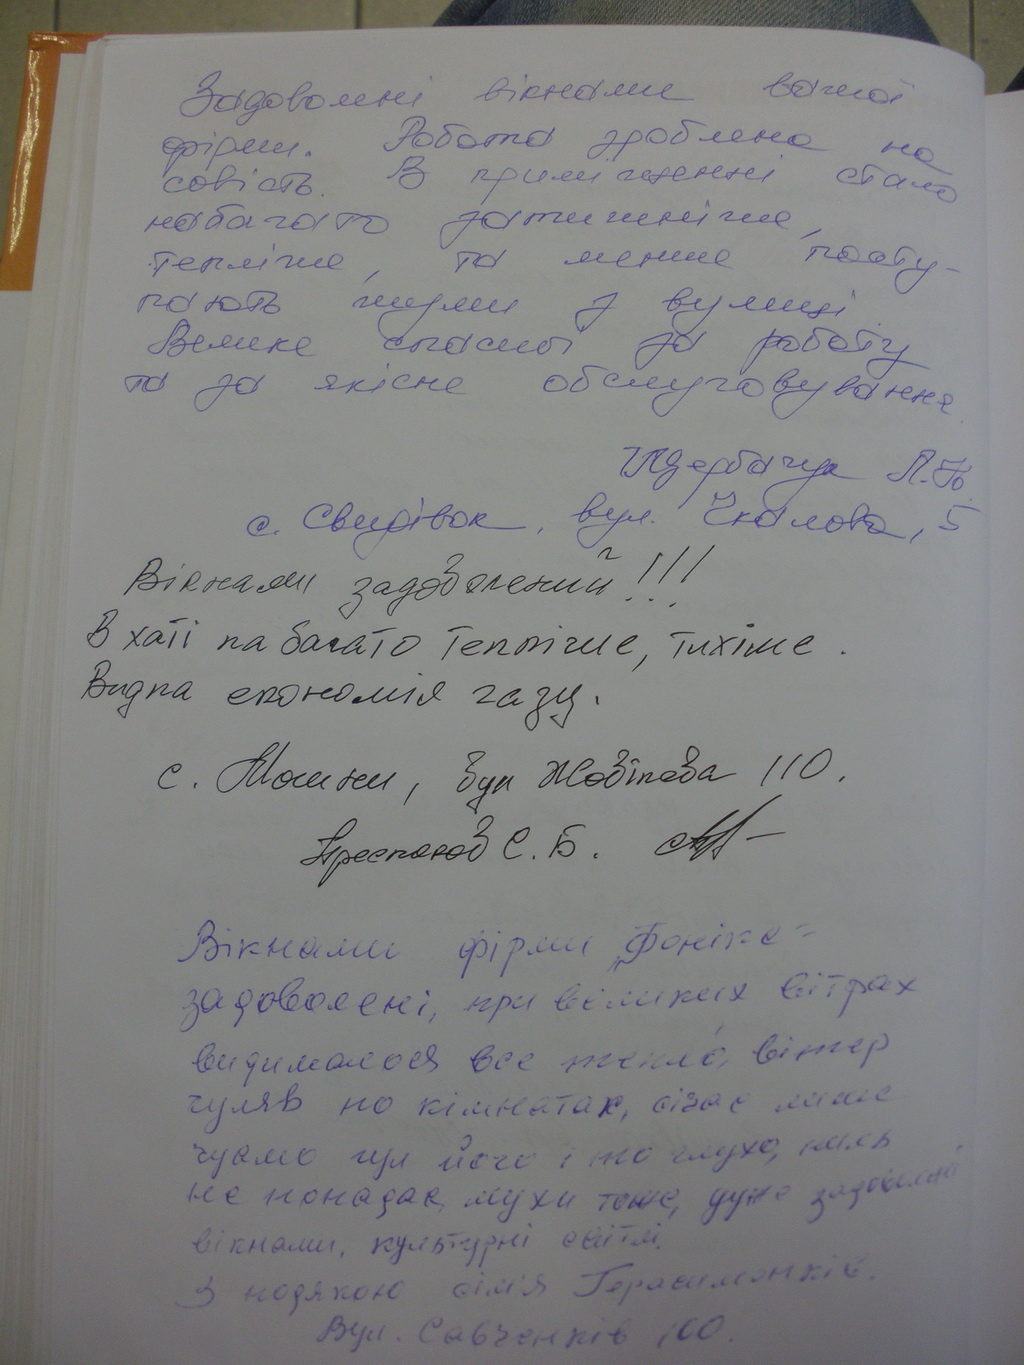 Задоволені вікнами вашої
фірми. Робота зроблена на
совість. В приміщенні стало
набагато затишніше,
тепліше, та менше посту-
пають шуми з вулиці
Велике спасибі за роботу
та за якісне обслуговування
Щербачук Л.
с. Свидівок, вул. Чкалова, 5
Вікнами задоволений!!!
В хаті на багато тепліше, тихіше.
Видна економія газу.
с. Мошни, вул 110.
С. Б.
Вікнами фірми „Фонікс"
задоволені, при великих вітрах
видималося все тепло, вітер
гуляв по кімнатах, зізас лише
чуємо гул його і то глухо, пиль
не попадає, мухи тоже, дуже задоволені
вікнами, культурні світлі.
З подякою сім'я Герасименків.
Вул. Савченків 100.